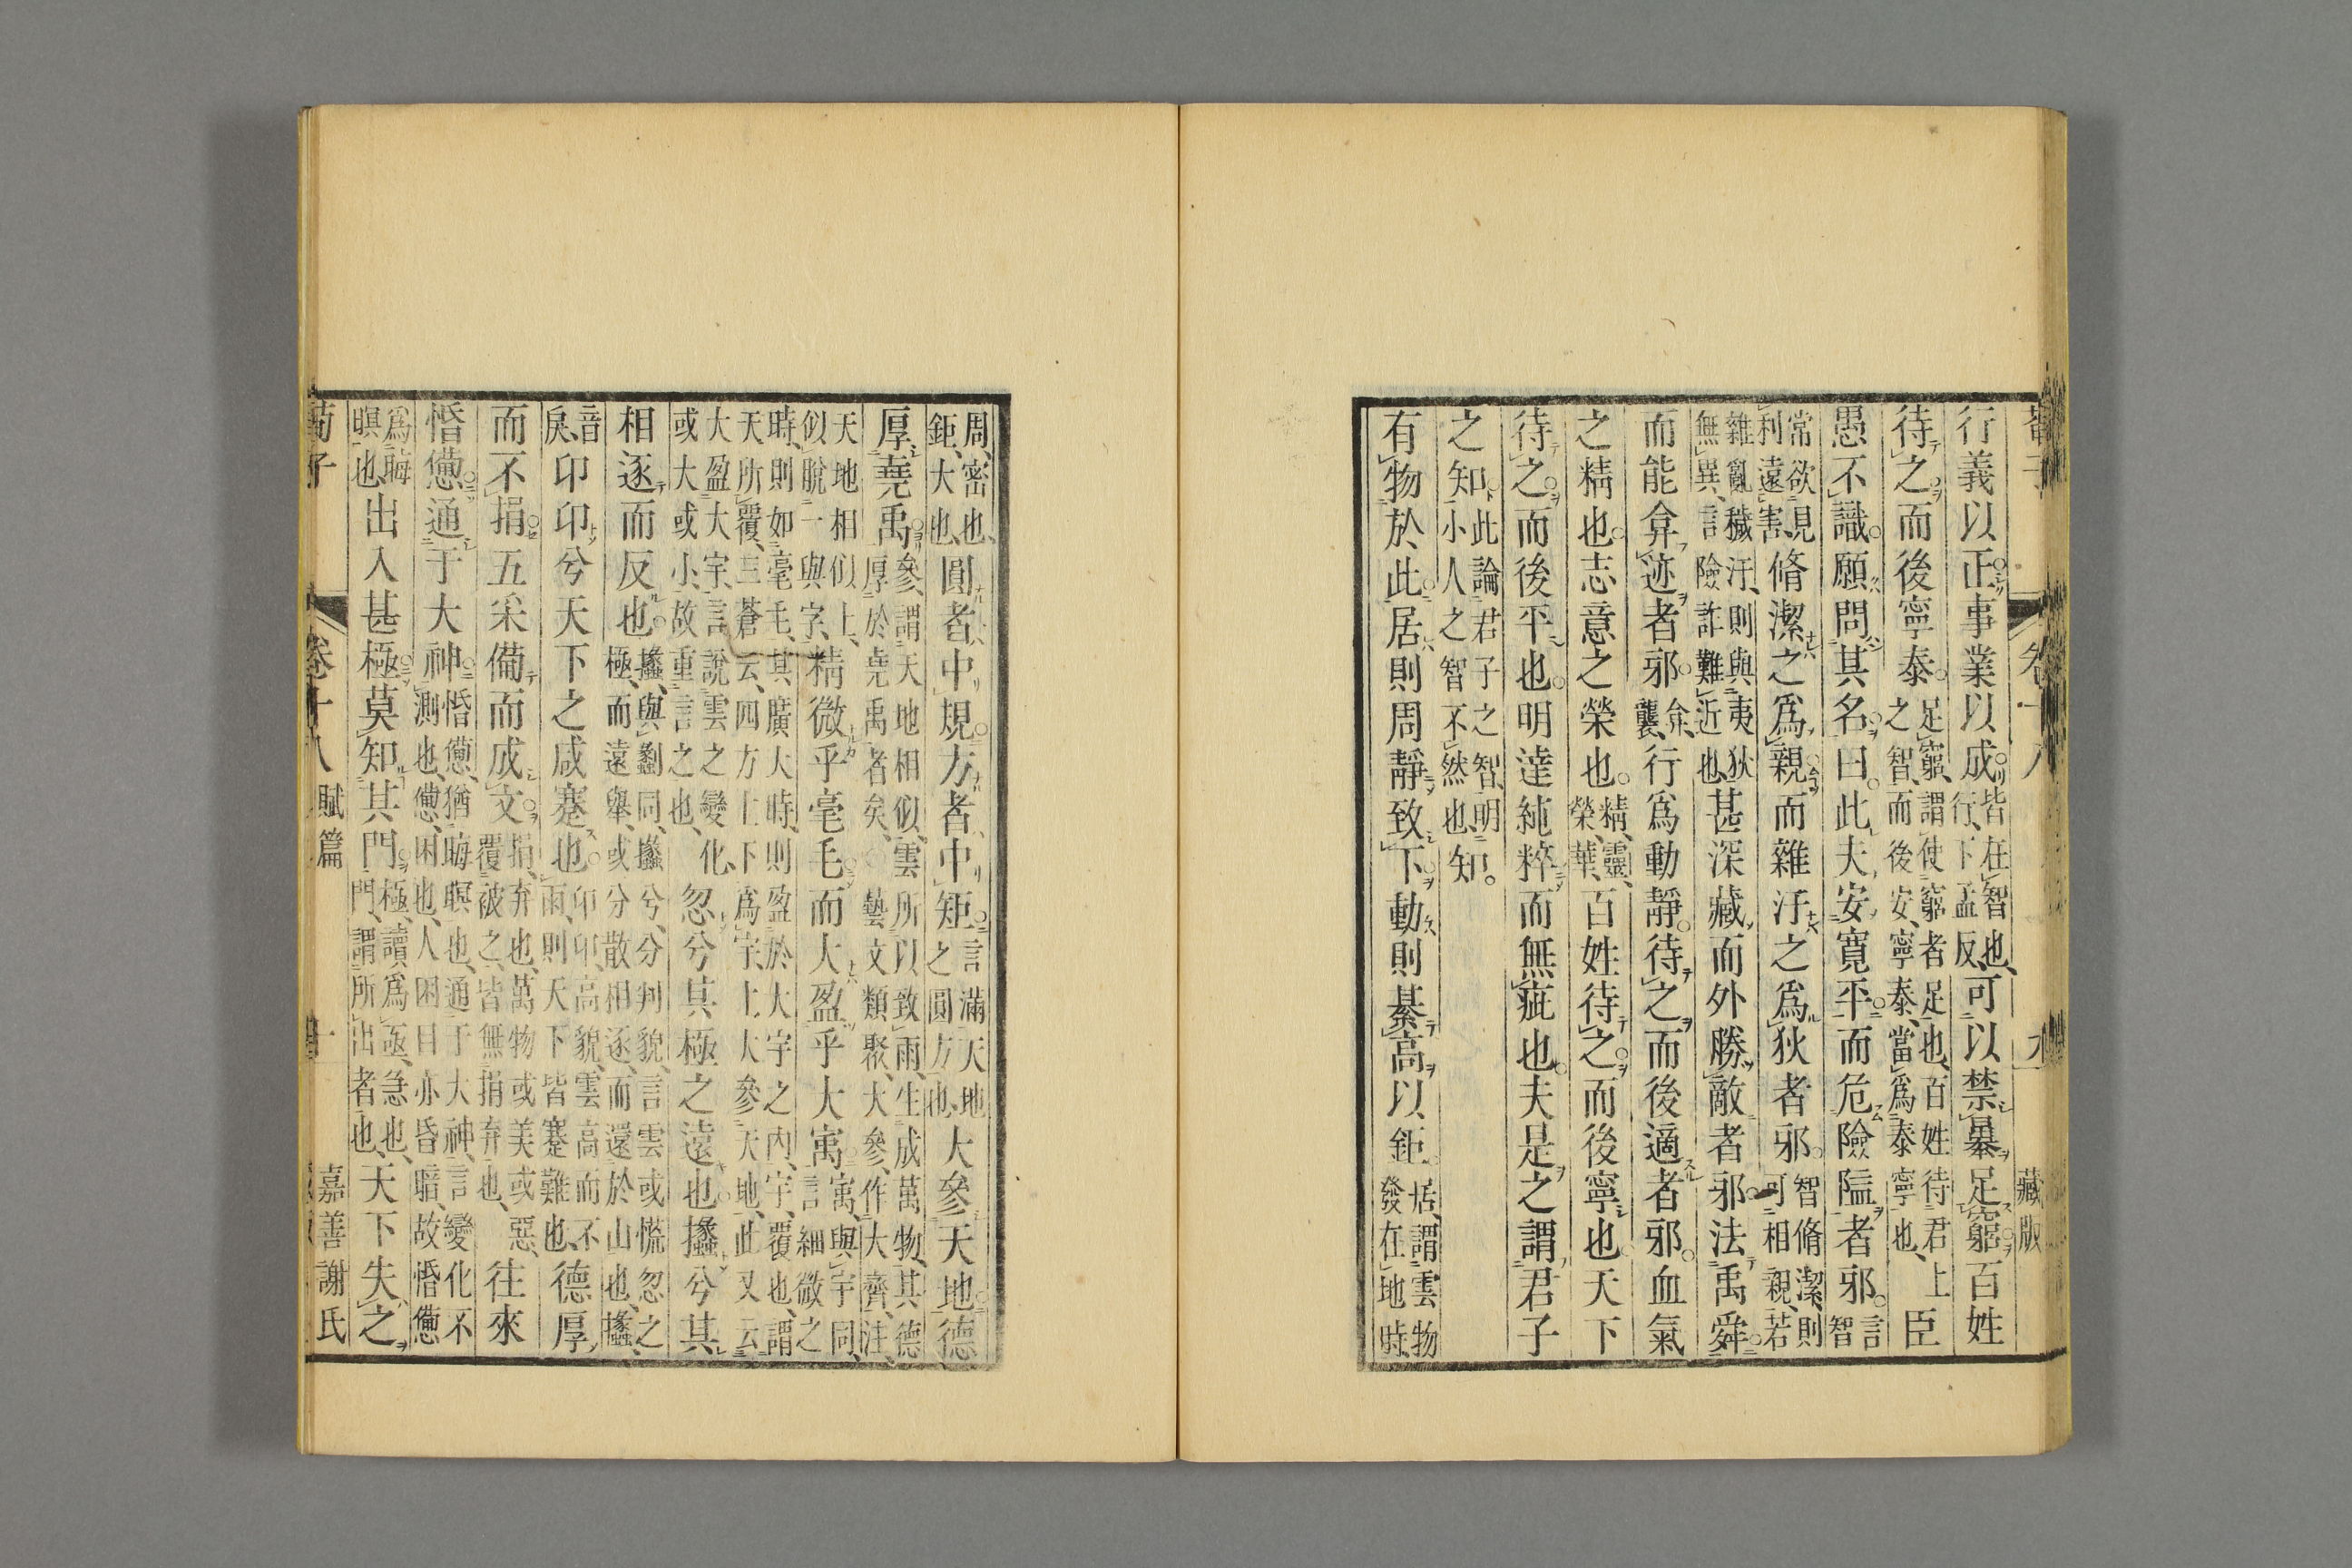 卷十八
藏版
行義以正事業以成皆在智也行下孟反可以禁暴足窮百姓
待之而後寧泰足窮謂使窮者足也百姓待君上之智而後安寧泰當爲泰寧也臣
愚不識願問其名曰此夫安寬平而危險隘者邪言智
常欲見利遠害脩潔之爲親而雜汙之爲狄者邪智脩潔則可相親若
雜亂穢汙則與夷狄無異言險詐難近也甚深藏而外勝敵者邪法禹舜
而能弇迹者邪弇襲行爲動靜待之而後適者邪血氣
之精也志意之榮也精靈榮華百姓待之而後寧也天下
待之而後平也明達純粹而無疵也夫是之謂君子
之知此論君子之智明小人之智不然也知
有物於此居則周靜致下動則綦高以鉅居謂雲物發在地時
周密也鉅大也圓者中規方者中矩言滿天地之圓方也大參天地德
厚堯禹參謂天地相似雲所以致雨生成萬物其德厚於堯禹者矣○藝文類聚大參作大齊注
天地相似上似脫一與字精微乎毫毛而大盈乎大寓寓與宇同言細微之
時則如毫毛其廣大時則盈於大宇之内宇覆也謂天所覆三蒼云四方上下爲宇上大參天地此又云
大盈大宇言說雲之變化或大或小故重言之也忽兮其極之遠也攭兮其
相逐而反也攭與劙同攭兮分判貌言雲或慌忽之極而遠舉或分散相逐而還於山也攭
音戾卬卬兮天下之咸蹇也卬卬高貌雲高而不雨則天下皆蹇難也德厚
而不捐五采備而成文捐弃也萬物或美或惡覆被之皆無捐弃也往來
惛憊通于大神惛憊猶晦暝也通于大神言變化不測也憊困也人困目亦昏暗故惛憊
爲晦暝也出入甚極莫知其門極讀爲亟急也門謂所出者也天下失之
荀子
卷十八
賦篇
十
嘉善謝氏